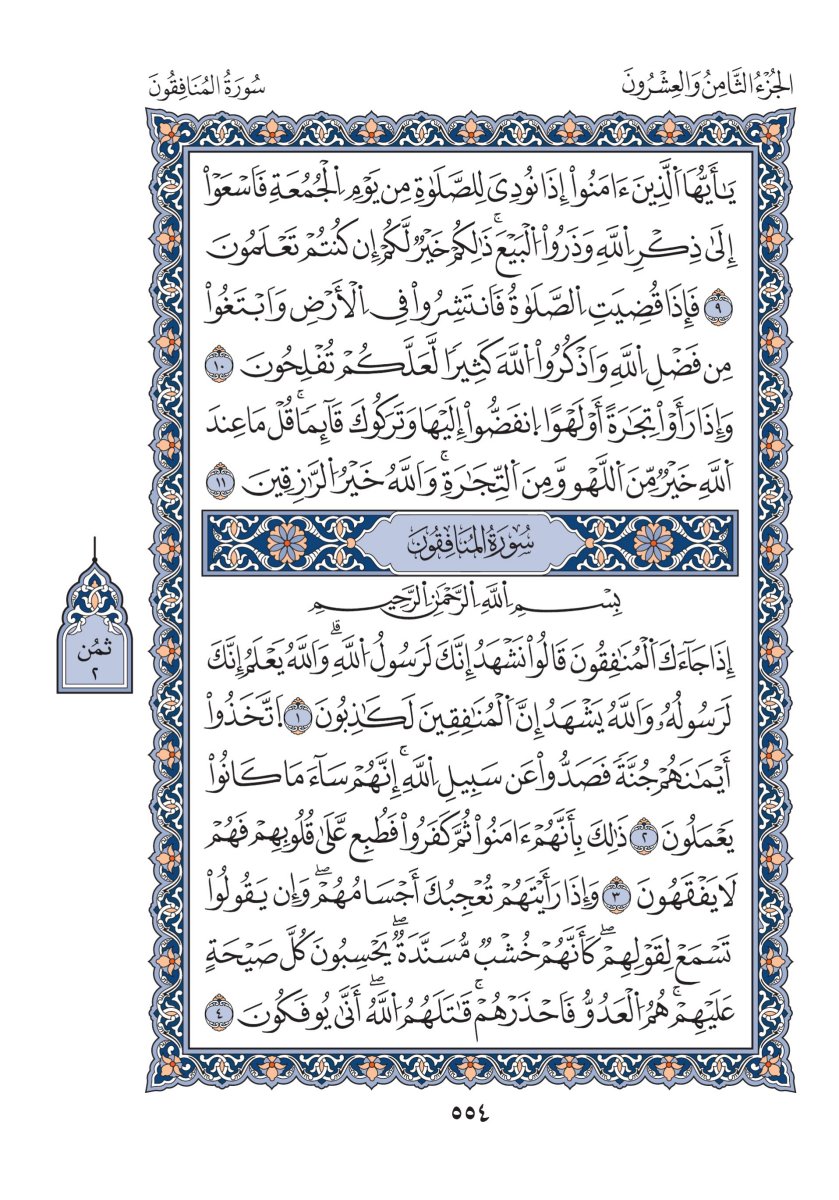 الجُزْءُ الثَّامِنُ وَالعِشْرُونَ
سُورَةُ المُنَافِقُونَ
يَٰٓأَيُّهَا اَ۬لذِينَ ءَامَنُوٓاْ إِذَا نُودِيَ لِلصَّلَوٰةِ مِن يَوْمِ اِ۬لْجُمُعَةِ فَاسْعَوْاْ
إِلَىٰ ذِكْرِ اِ۬للَّهِ وَذَرُواْ اُ۬لْبَيْعَۚ ذَٰلِكُمْ خَيْرٞ لَّكُمْ إِن كُنتُمْ تَعْلَمُونَ
٩ فَإِذَا قُضِيَتِ اِ۬لصَّلَوٰةُ فَانتَشِرُواْ فِي اِ۬لْأَرْضِ وَابْتَغُواْ
مِن فَضْلِ اِ۬للَّهِ وَاذْكُرُواْ اُ۬للَّهَ كَثِيرٗا لَّعَلَّكُمْ تُفْلِحُونَ ١٠
وَإِذَا رَأَوْاْ تِجَٰرَةً أَوْ لَهْوًا اِ۪نفَضُّوٓاْ إِلَيْهَا وَتَرَكُوكَ قَآئِمٗاۚ قُلْ مَا عِندَ
اَ۬للَّهِ خَيْرٞ مِّنَ اَ۬للَّهْو وَّمِنَ اَ۬لتِّجَٰرَةِۚ وَاللَّهُ خَيْرُ اُ۬لرَّٰزِقِينَ ١١
سُورَةُ المُنَافِقُونَ
بِسْمِ اِ۬للَّهِ اِ۬لرَّحْمَٰنِ اِ۬لرَّحِيمِ
إِذَا جَآءَكَ اَ۬لْمُنَٰفِقُونَ قَالُواْ نَشْهَدُ إِنَّكَ لَرَسُولُ اُ۬للَّهِۗ وَاللَّهُ يَعْلَمُ إِنَّكَ
لَرَسُولُهُۥ وَاللَّهُ يَشْهَدُ إِنَّ اَ۬لْمُنَٰفِقِينَ لَكَٰذِبُونَ ١ اَ۪تَّخَذُوٓاْ
أَيْمَٰنَهُمْ جُنَّةٗ فَصَدُّواْ عَن سَبِيلِ اِ۬للَّهِۚ إِنَّهُمْ سَآءَ مَا كَانُواْ
يَعْمَلُونَ ٢ ذَٰلِكَ بِأَنَّهُمْ ءَامَنُواْ ثُمَّ كَفَرُواْ فَطُبِع عَّلَىٰ قُلُوبِهِمْ فَهُمْ
لَا يَفْقَهُونَ ٣ وَإِذَا رَأَيْتَهُمْ تُعْجِبُكَ أَجْسَامُهُمْۖ وَإِن يَقُولُواْ
تَسْمَعْ لِقَوْلِهِمْۖ كَأَنَّهُمْ خُشْبٞ مُّسَنَّدَةٞۖ يَحْسِبُونَ كُلَّ صَيْحَةٍ
عَلَيْهِمْۚ هُمُ اُ۬لْعَدُوُّ فَاحْذَرْهُمْۚ قَٰتَلَهُمُ اُ۬للَّهُۖ أَنَّىٰ يُوفَكُونَ ٤
ثمُن
٢
٥٥٤